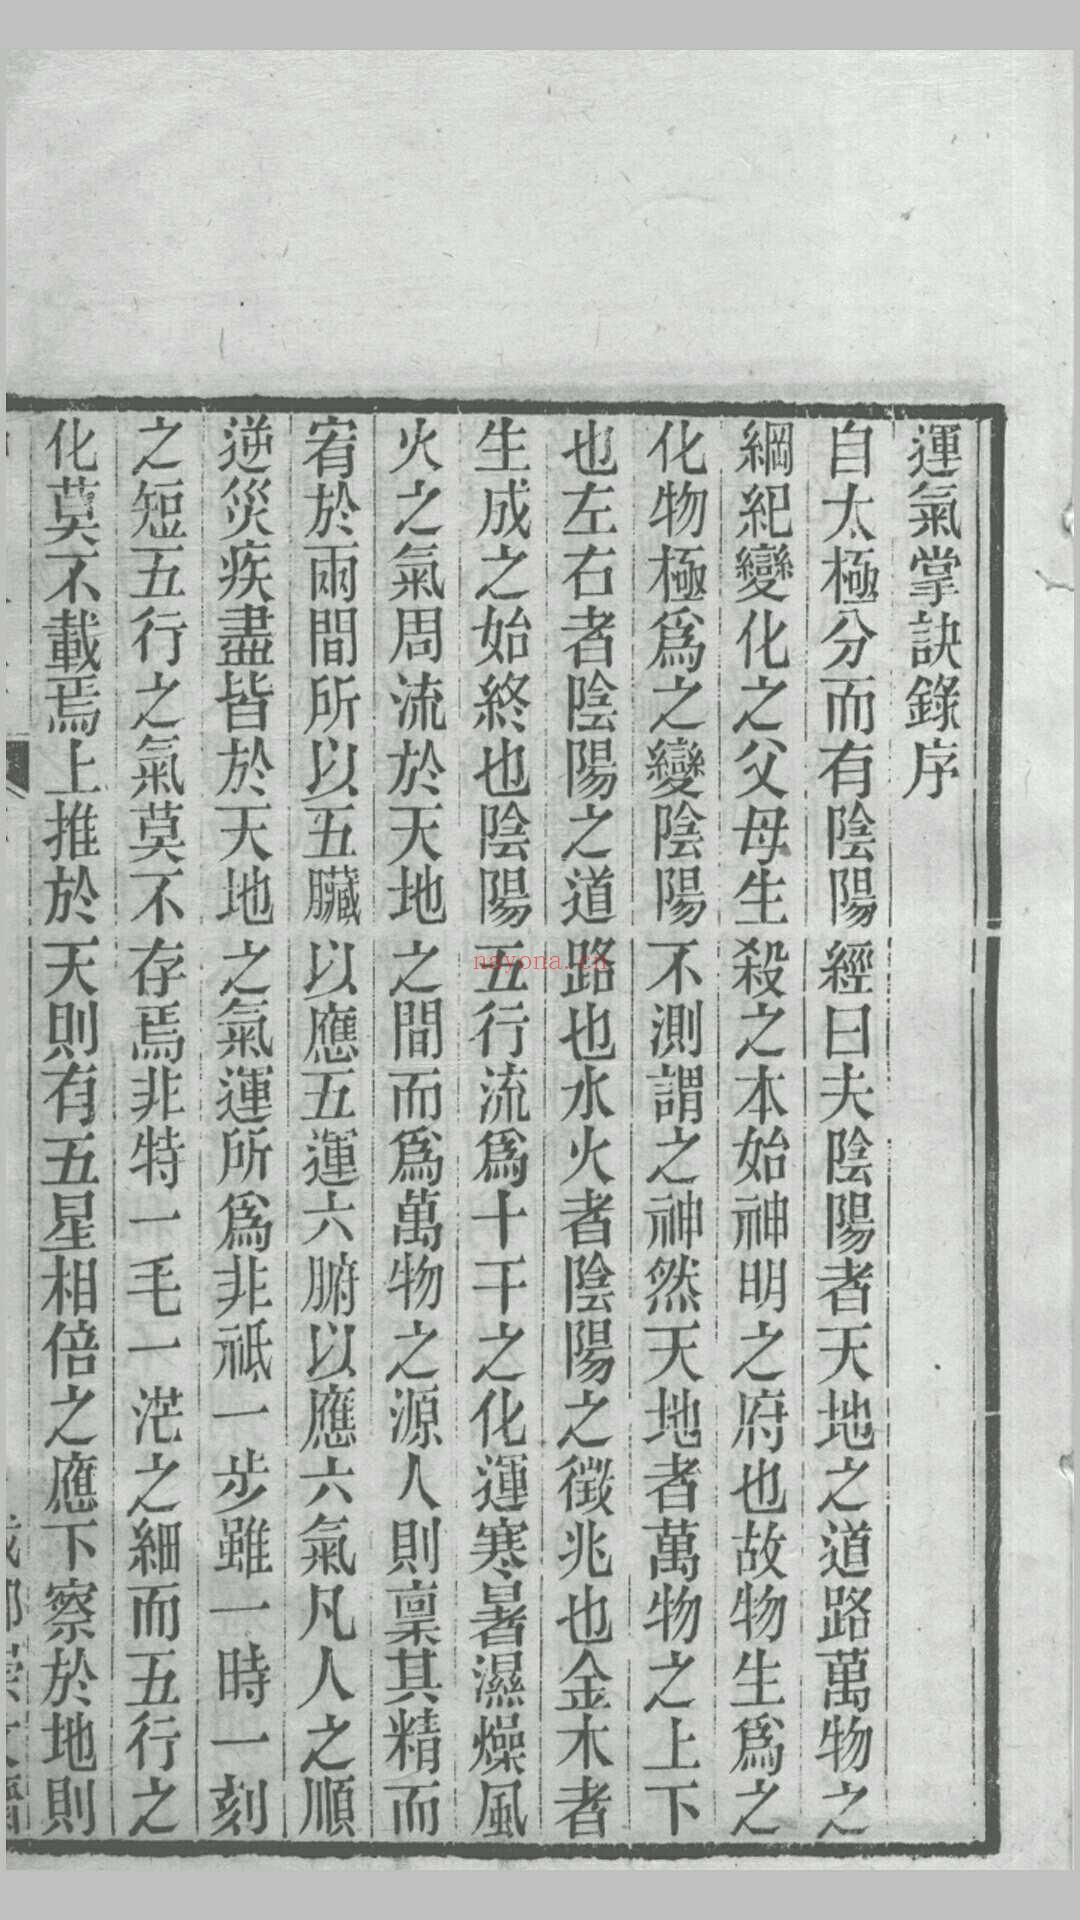 運氣掌訣錄序
自太極分而有陰陽經曰夫陰陽者天地之道路萬物之
綱紀變化之父母生殺之本始神明之府也故物生爲之
化物極爲之變陰陽不測謂之神然天地者萬物之上下
也左右者陰陽之道路也水火者陰陽之徵兆也金木者
生成之始終也陰陽五行流爲十干之化運寒暑濕燥風
火之氣周流於天地之間而爲萬物之源人則稟其精而
宥於兩間所以五臟以應五運六腑以應六氣凡人之順
逆災疾盡皆於天地之氣運所爲非祗一步雖一時一刻
之短五行之氣莫不存焉非特一毛一茫之細而五行之
化莫不載焉上推於天則有五星相倍之應下察於地則
nayona.cn